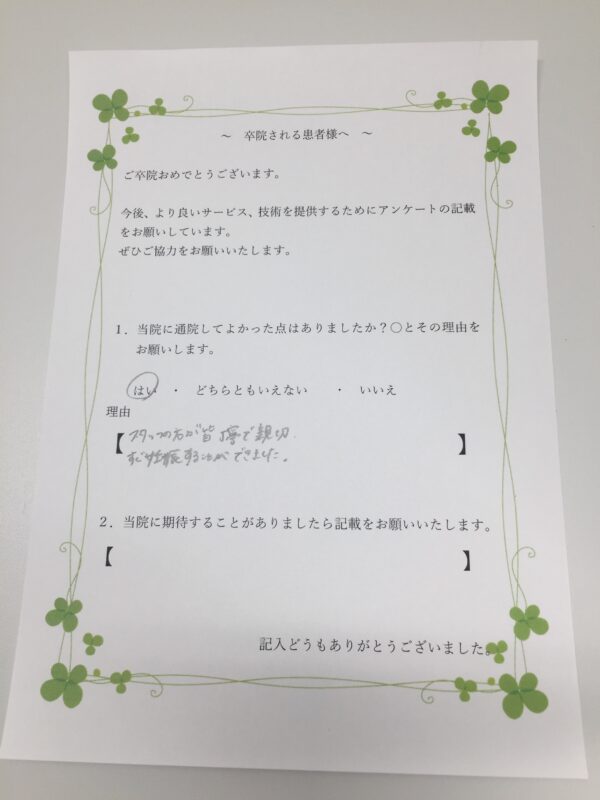 ～ 卒院される患者様へ ～
ご卒院おめでとうございます。
今後、より良いサービス、技術を提供するためにアンケートの記載
をお願いしています。
ぜひご協力をお願いいたします。
１．当院に通院してよかった点はありましたか？○とその理由を
お願いします。
はい ・ どちらともいえない ・ いいえ
理由
【スタッフの方が皆丁寧で親切 】
すぐ妊娠することができました。
２．当院に期待することがありましたら記載をお願いいたします。
【 】
記入どうもありがとうございました。